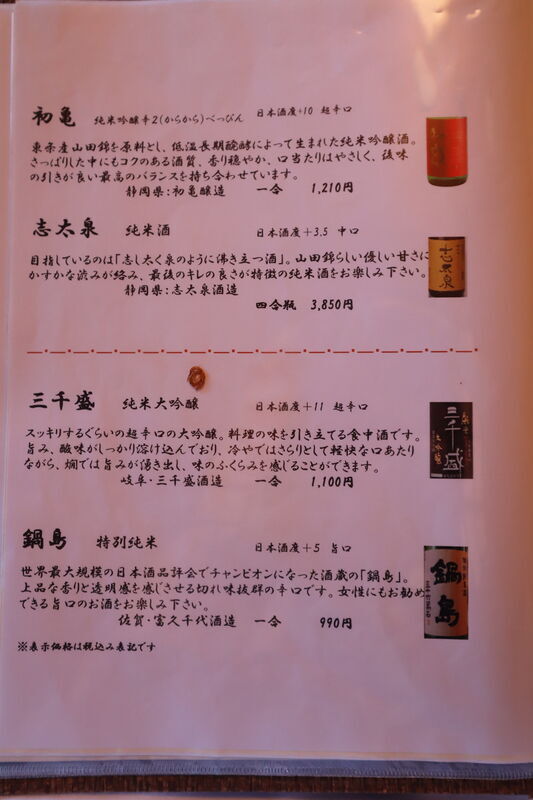 初亀 純米吟醸辛2(からから)べっぴん 日本酒度+10 超辛口
東条産山田錦を原料とし、低温長期醗酵によって生まれた純米吟醸酒。
さっぱりした中にもコクのある酒質、香り穏やか、口当たりはやさしく、後味
の引きが良い最高のバランスを持ち合わせています。
静岡県:初亀醸造 一合 1,210円
志太泉 純米酒 日本酒度+3.5 中口
目指しているのは「志し太く泉のように沸き立つ酒」。山田錦らしい優しい甘さに
かすかな渋みが絡み、最後のキレの良さが特徴の純米酒をお楽しみ下さい。
静岡県:志太泉酒造
四合瓶 3,850円
三千盛 純米大吟醸 日本酒度+11 超辛口
スッキリするぐらいの超辛口の大吟醸。料理の味を引き立てる食中酒です。
旨み、酸味がしっかり溶け込んでおり、冷やではさらりとして軽快な口あたり
ながら、燗では旨みが湧き出し、味のふくらみを感じることができます。
岐阜・三千盛酒造 一合 1,100円
鍋島 特別純米 日本酒度+5 旨口
世界最大規模の日本酒品評会でチャンピオンになった酒蔵の「鍋島」。
上品な香りと透明感を感じさせる切れ味抜群の辛口です。女性にもお勧め
できる旨口のお酒をお楽しみ下さい。
佐賀・富久千代酒造 一合 990円
※表示価格は税込み表記です
志太泉
三千盛
鍋島